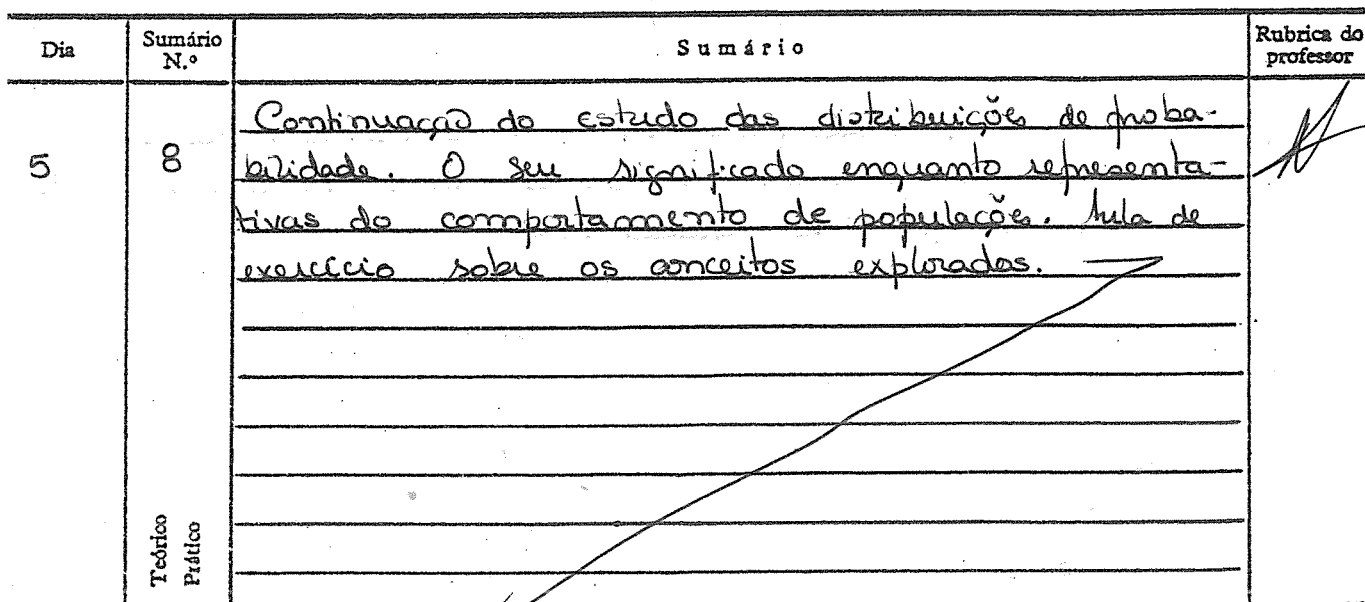 Dia
Sumário N.º
Sumário
Rubrica do professor
5
8
Continuação do estudo das distribuições de proba-
bilidade. O seu significado enquanto representa-
tivas do comportamento de populações. Aula de
exercício sobre os conceitos explorados.
Teórico
Prático